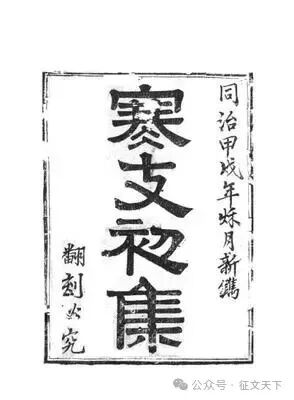 同治甲戌年秌月新鐫
寒支初集
翻刻必究
公众号 · 征文天下